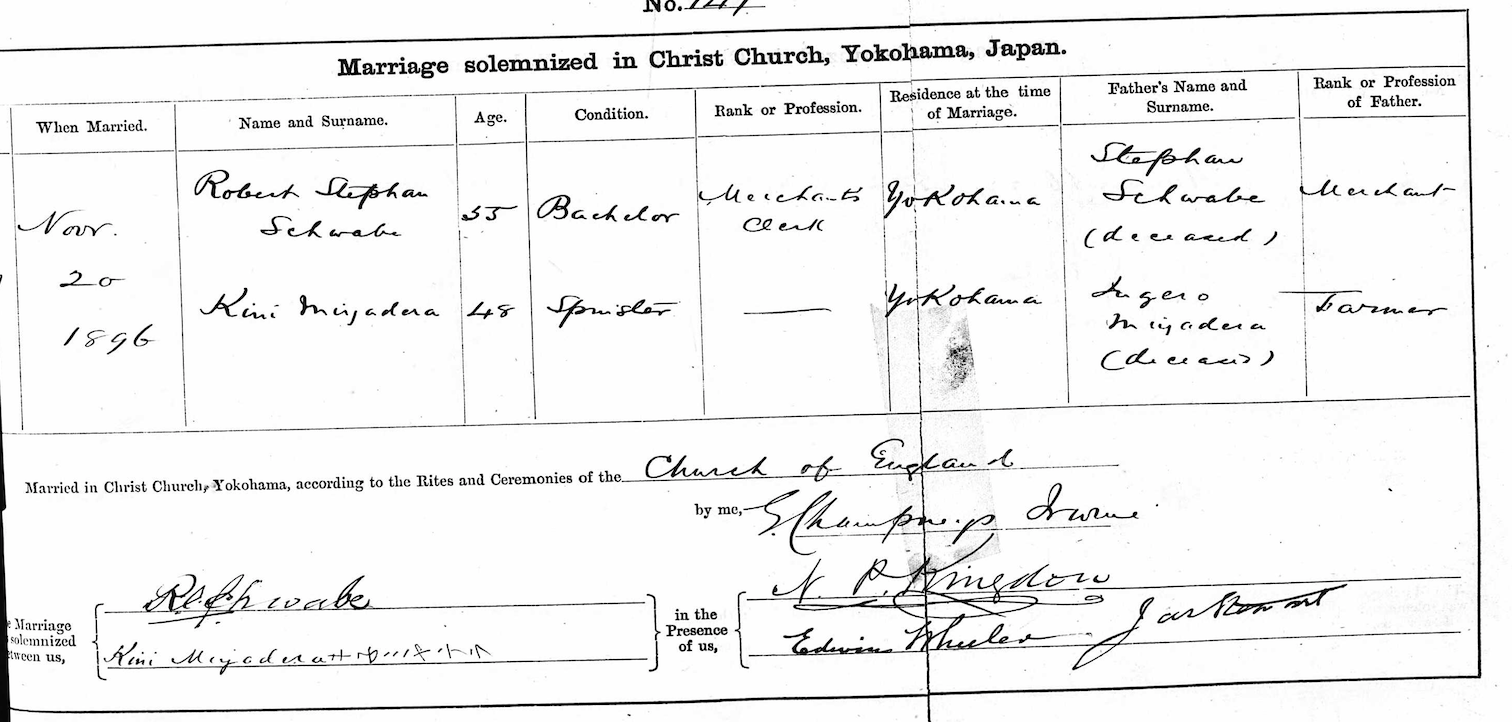 No.
Marriage solemnized in Christ Church, Yokohama, Japan.
When Married.
Name and Surname.
Age.
Condition.
Rank or Profession.
Residence at the time
of Marriage.
Father's Name and
Surname.
Rank or Profession
of Father.
Novr.
20
1896
Robert Stephan
Schwabe
55
Bachelor
Merchants
Clerk
Yokohama
Stephan
Schwabe
(deceased)
Merchant
Kini Miyadera
48
Spinster
Yokohama
Miyadera
(deceased)
Farmer
Married in Christ Church, Yokohama, according to the Rites and Ceremonies of the Church of England
by me, E Champneys Irwine
Marriage
solemnized
tween us,
R. S. Schwabe
Kini Miyadera
in the
Presence
of us,
N. P. Kingdon
Edwin Wheeler
Jas Stewart